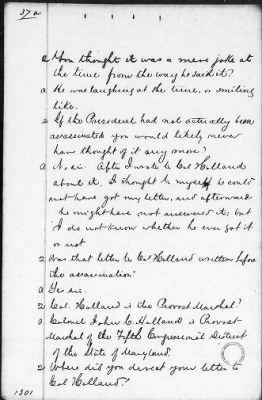 37a
Q You thought it was a mere joke at
the time from the way he said it?
A He was laughing at the time, or smiling
like.
Q If the President had not actually been
assassinated you would likely never
have thought of it any more?
A No sir. After I wrote to Col Holland
about it, I thought to myself he could
not have got my letter, and afterward
he might have not answered it, but
I do not know whether he ever got it
or not
Q Was that letter to Col Holland written before
the assassination?
A Yes sir.
Q Col. Holland is the Provost Marshal?
A Colonel John C. Holland is Provost
Marshal of the Fifth Congressional District
of the State of Maryland.
Q Where did you direct your letter to
Col Holland?
1301